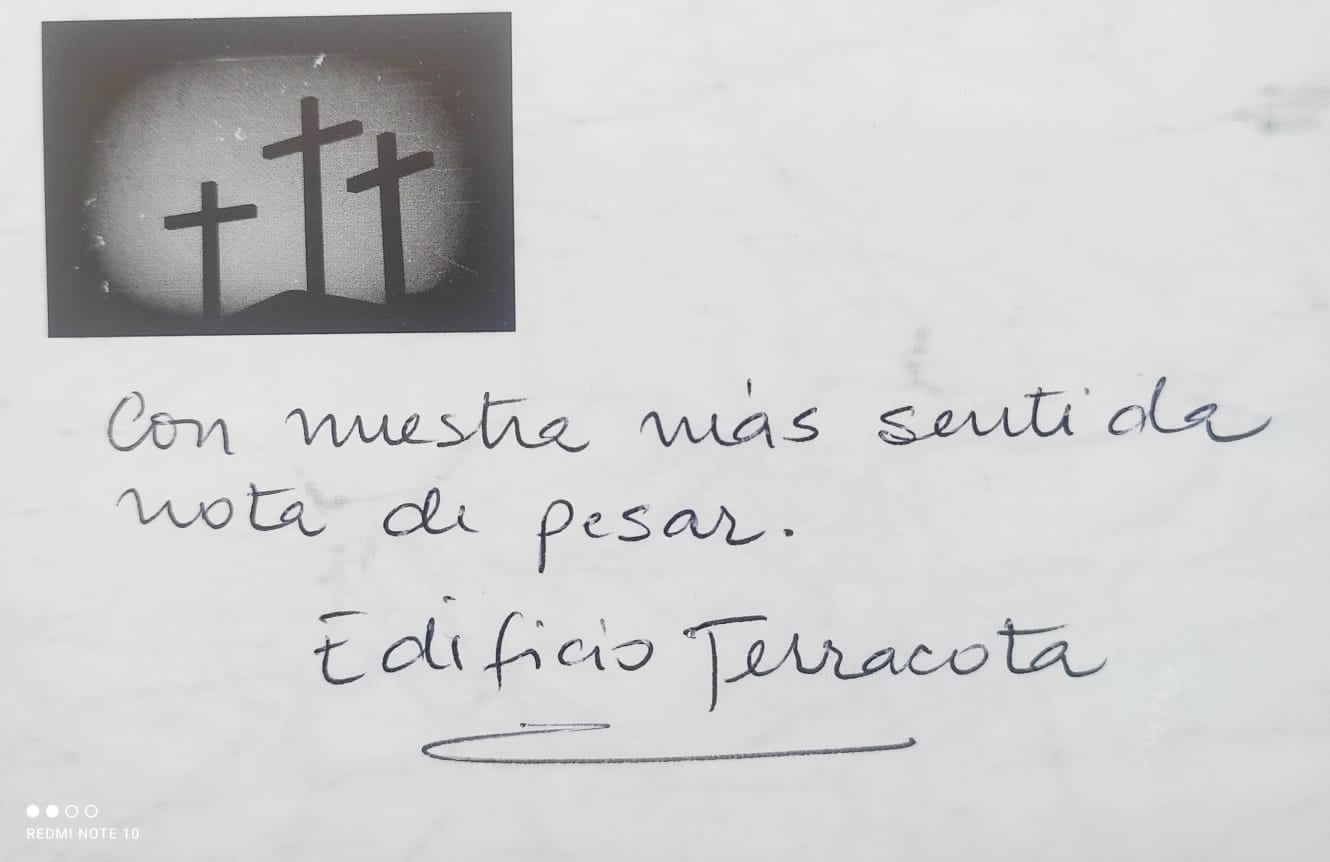 Con nuestra más sentida
nota de pesar.
Edificio Terracota
REDMI NOTE 10